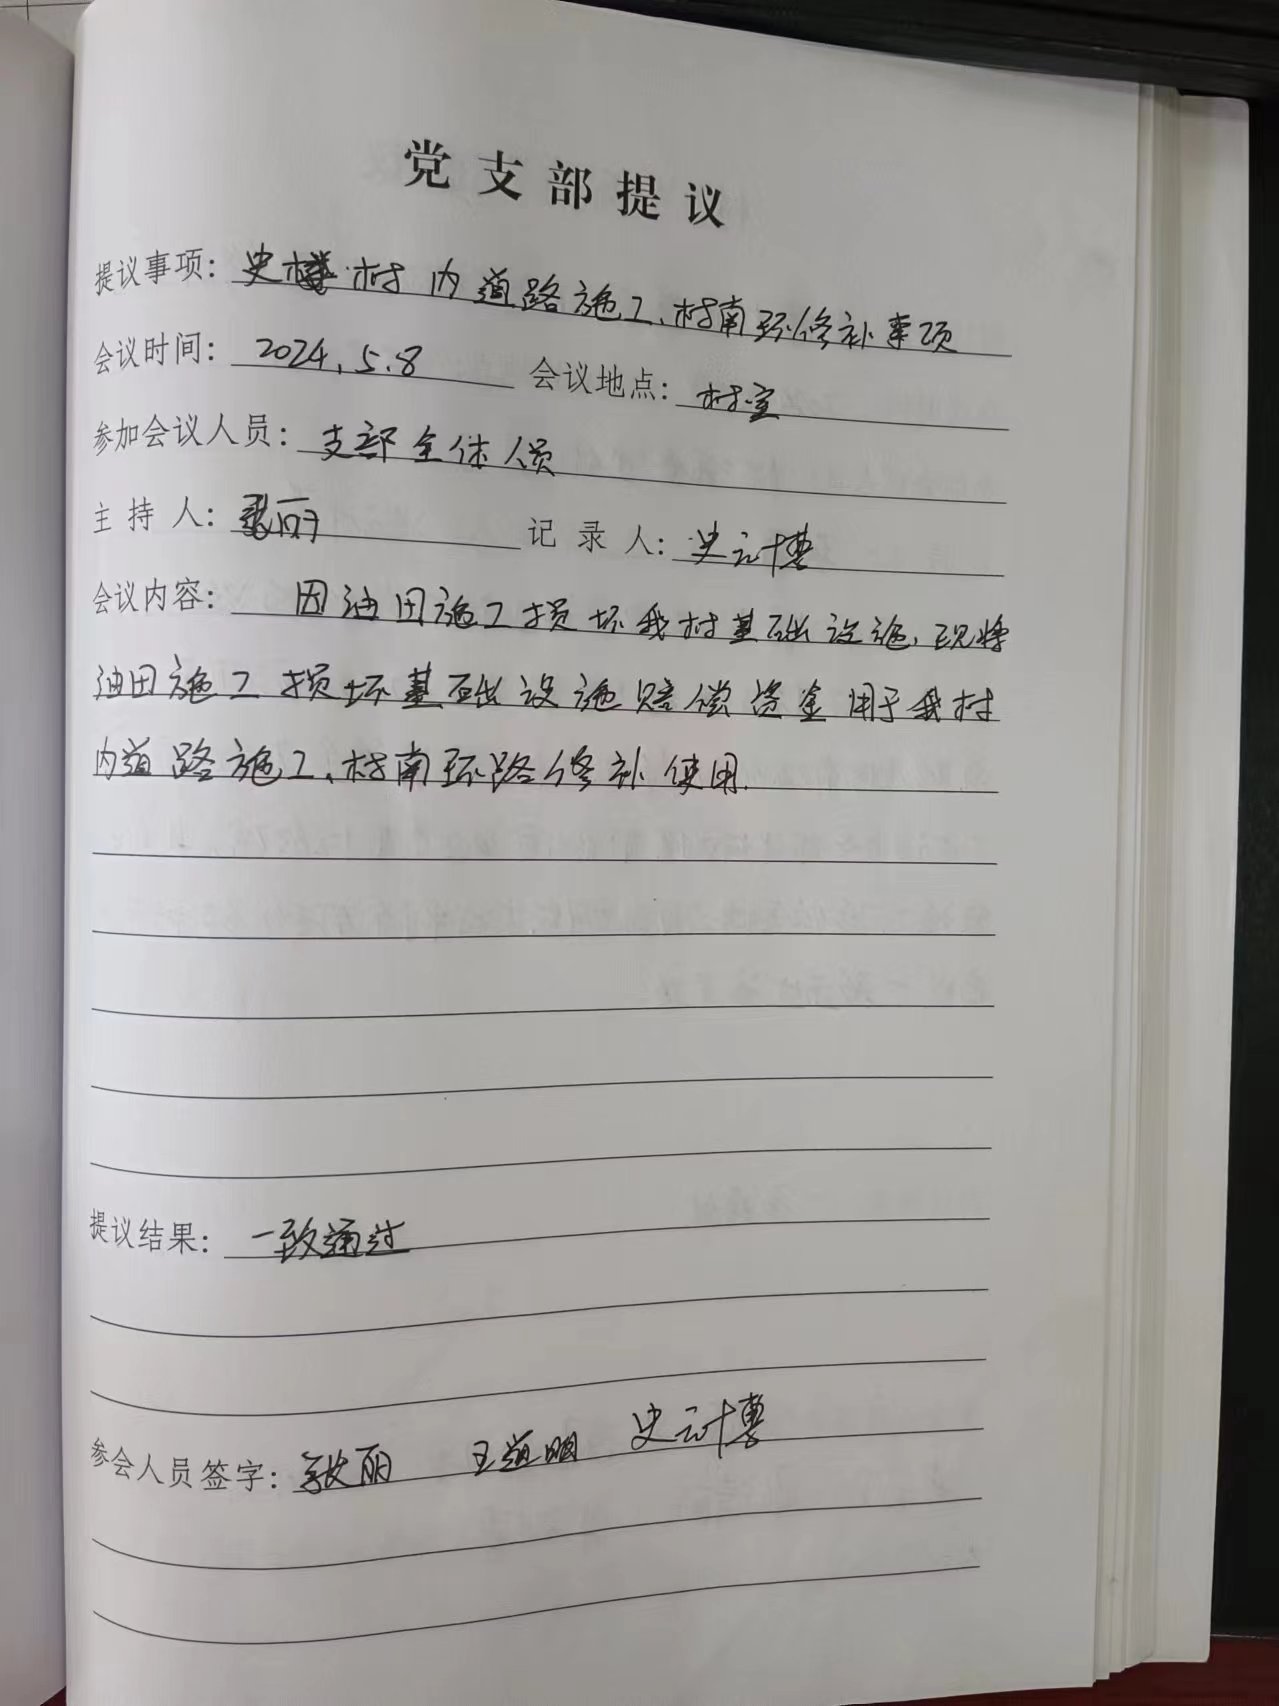 党支部提议
提议事项：史楼村内道路施工、村南环修补事项
会议时间：2024.5.8 会议地点：村室
参加会议人员：支部全体人员
主持人：丽 记录人：史云博
会议内容：因油田施工损坏我村基础设施，现将
油田施工损坏基础设施赔偿资金用于我村
内道路施工、村南环路修补使用.
提议结果：一致通过
参会人员签字：丽 王道明 史云博